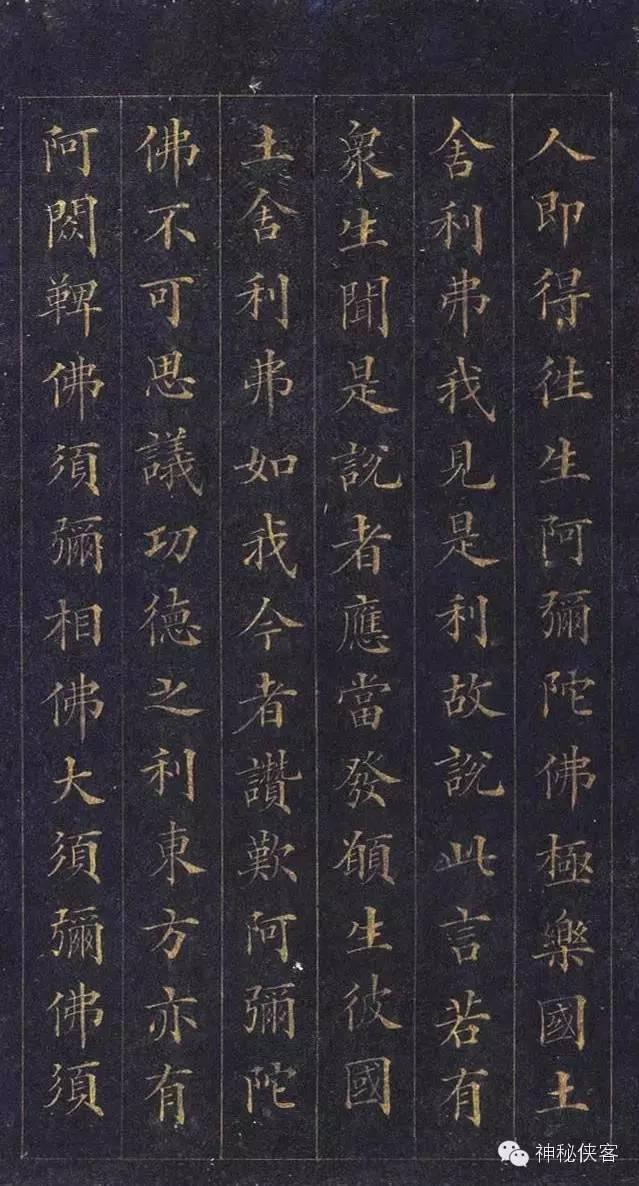 人即得往生阿彌陀佛極樂國土
舍利弗我見是利故說此言若有
衆生聞是說者應當發願生彼國
土舍利弗如我今者讚歎阿彌陀
佛不可思議功德之利東方亦有
阿閦鞞佛須彌相佛大須彌佛須
神秘侠客